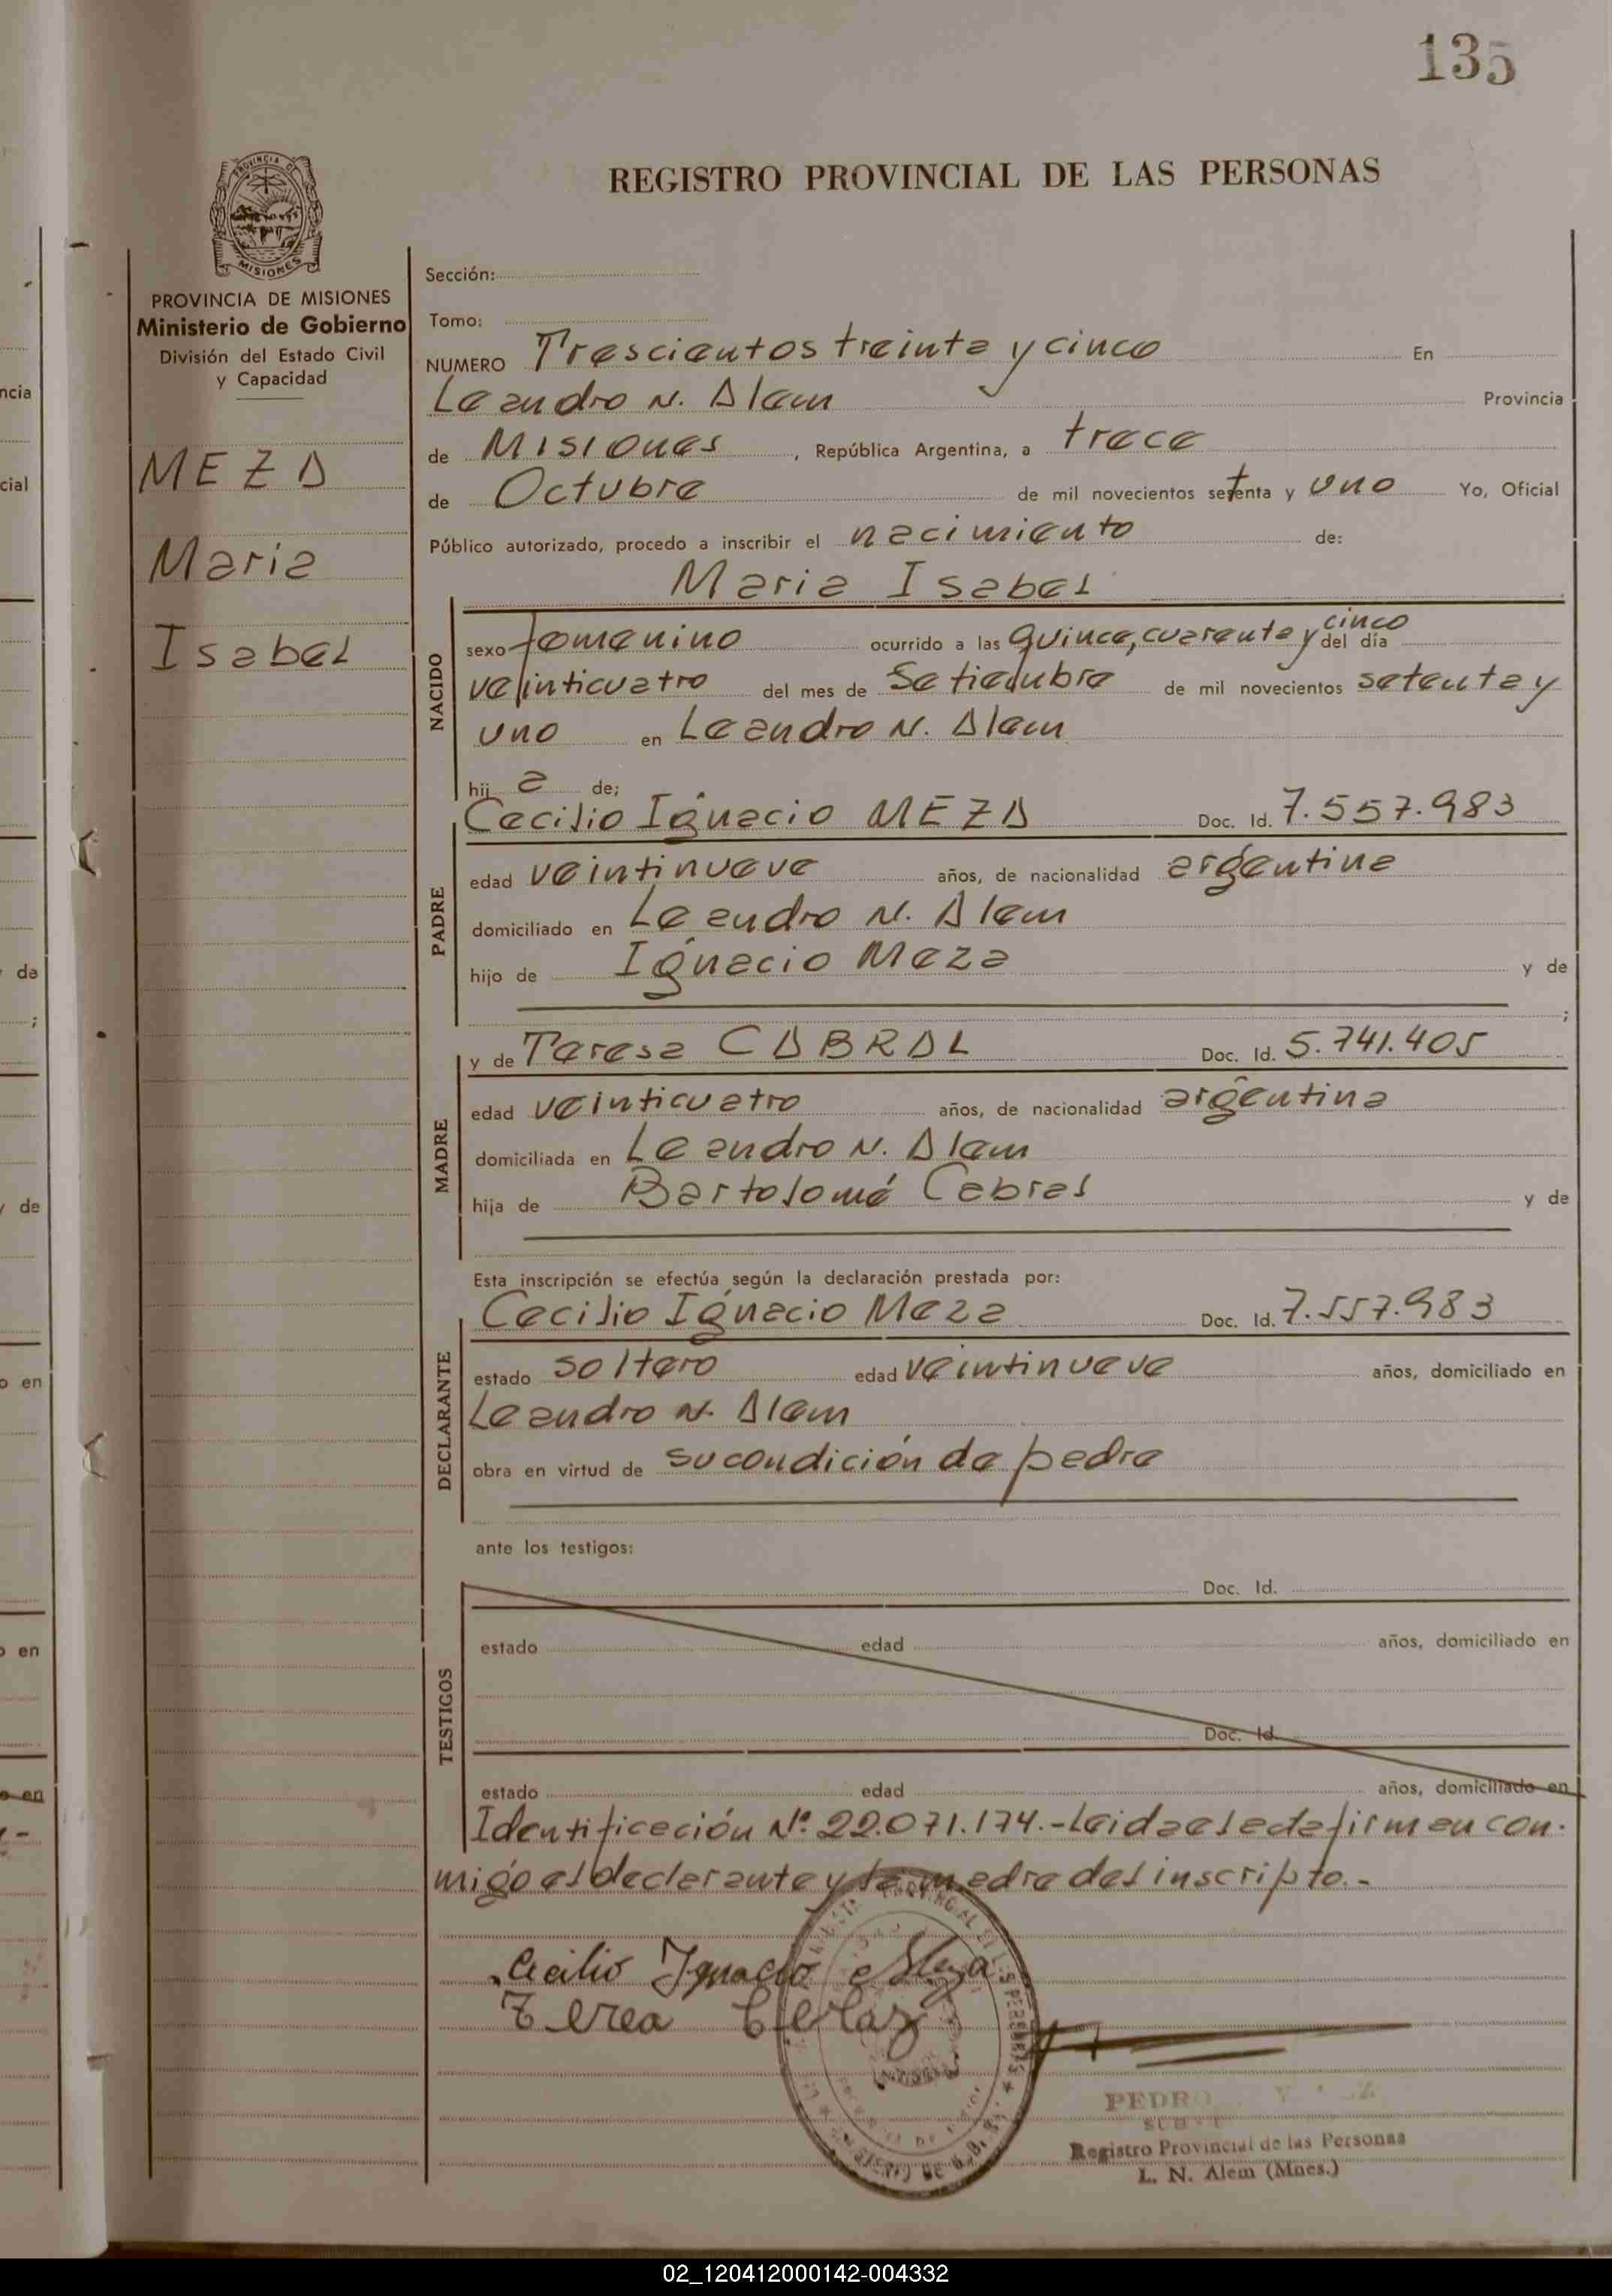 135
PROVINCIA DE
MISIONES
REGISTRO PROVINCIAL DE LAS PERSONAS
PROVINCIA DE MISIONES
Ministerio de Gobierno
División del Estado Civil
y Capacidad
MEZA
Maria
Isabel
Sección:
Tomo:
NUMERO Trescientos treinta y cinco En
Leandro N. Alem Provincia
de Misiones, República Argentina, a trece
de Octubre de mil novecientos setenta y uno Yo, Oficial
Público autorizado, procedo a inscribir el nacimiento de:
Maria Isabel
NACIDO
sexo femenino ocurrido a las quince, cuarenta y cinco del día
veinticuatro del mes de Setiembre de mil novecientos setenta y
uno en Leandro N. Alem
hij a de;
Cecilio Ignacio MEZA Doc. Id. 7.557.983
PADRE
edad veintinueve años, de nacionalidad argentina
domiciliado en Leandro N. Alem
hijo de Ignacio Meza y de
;
y de Teresa CABRAL Doc. Id. 5.741.405
MADRE
edad veinticuatro años, de nacionalidad argentina
domiciliada en Leandro N. Alem
hija de Bartolomé Cabral y de
Esta inscripción se efectúa según la declaración prestada por:
Cecilio Ignacio Meza Doc. Id. 7.557.983
DECLARANTE
estado soltero edad veintinueve años, domiciliado en
Leandro N. Alem
obra en virtud de su condición de padre
ante los testigos:
Doc. Id.
TESTIGOS
estado edad años, domiciliado en
Doc. Id.
estado edad años, domiciliado en
Identificación Nº 22.071.174.- Leida el acta firman con-
migo el declarante y la madre del inscripto.-
Cecilio Ignacio Meza
Terea
PEDRO
Registro Provincial de las Personas
L. N. Alem (Mnes.)
02_120412000142-004332